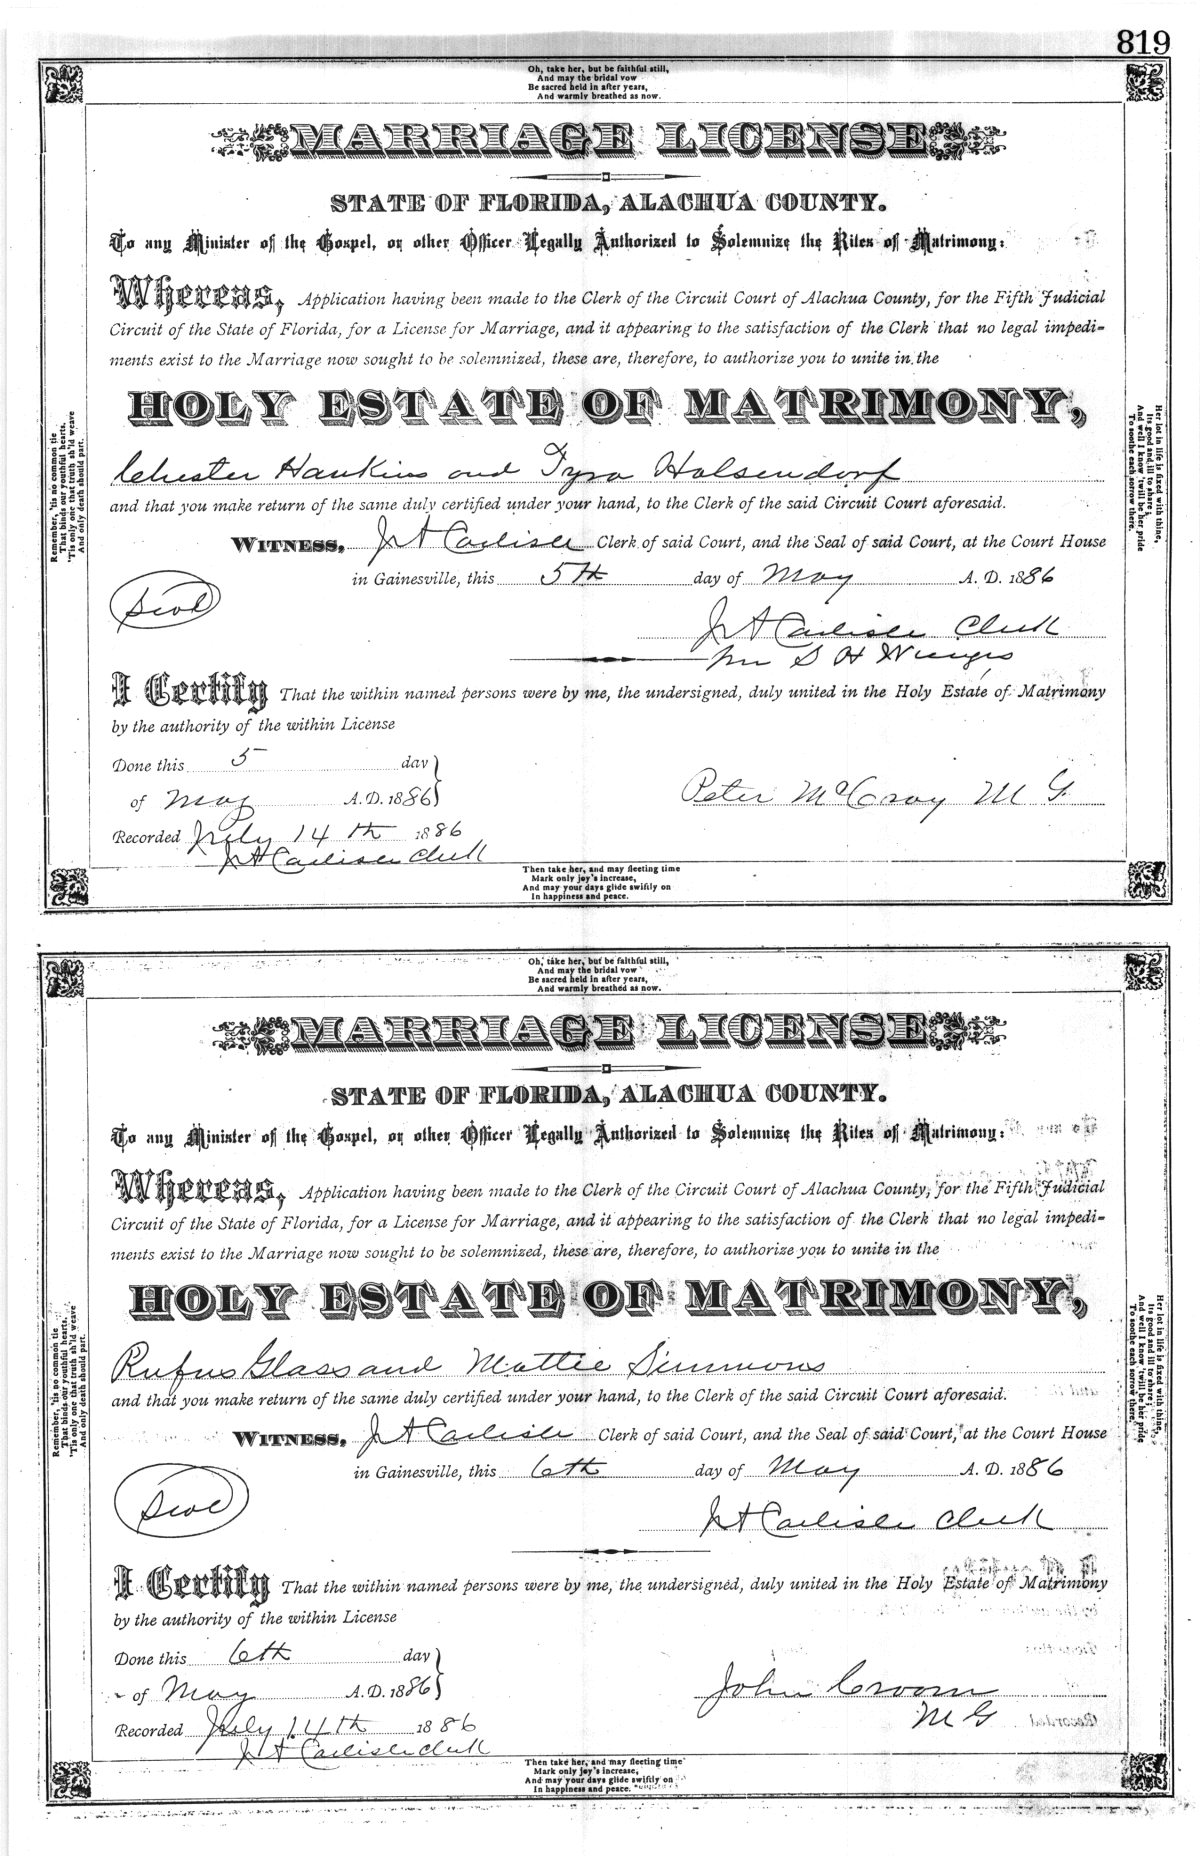 819
Oh, take her, but be faithful still,
And may the bridal vow
Be sacred held in after years,
And warmly breathed as now.
MARRIAGE LICENSE
STATE OF FLORIDA, ALACHUA COUNTY.
To any Minister of the Gospel, or other Officer Legally Authorized to Solemnize the Rites of Matrimony:
Whereas, Application having been made to the Clerk of the Circuit Court of Alachua County, for the Fifth Judicial
Circuit of the State of Florida, for a License for Marriage, and it appearing to the satisfaction of the Clerk that no legal impedi-
ments exist to the Marriage now sought to be solemnized, these are, therefore, to authorize you to unite in the
HOLY ESTATE OF MATRIMONY,
Chester Hankins and Tyra Holsendorf
and that you make return of the same duly certified under your hand, to the Clerk of the said Circuit Court aforesaid.
WITNESS, J A Carlisle Clerk of said Court, and the Seal of said Court, at the Court House
in Gainesville, this 5th day of May A. D. 1886
Seal
J A Carlisle Clerk
S H
I Certify That the within named persons were by me, the undersigned, duly united in the Holy Estate of Matrimony
by the authority of the within License
Done this 5 day
of May A. D. 1886
Peter McCray M G
Recorded July 14th 1886
J A Carlisle Clerk
Remember, 'tis no common tie
That binds our youthful hearts.
'Tis only one that truth sh'ld weave
And only death should part.
Her lot in life is fixed with thine,
Its good and ill to share;
And well I know 'twill be her pride
To soothe each sorrow there.
Then take her, and may fleeting time
Mark only joy's increase,
And may your days glide swiftly on
In happiness and peace.
Oh, take her, but be faithful still,
And may the bridal vow
Be sacred held in after years,
And warmly breathed as now.
MARRIAGE LICENSE
STATE OF FLORIDA, ALACHUA COUNTY.
To any Minister of the Gospel, or other Officer Legally Authorized to Solemnize the Rites of Matrimony:
Whereas, Application having been made to the Clerk of the Circuit Court of Alachua County, for the Fifth Judicial
Circuit of the State of Florida, for a License for Marriage, and it appearing to the satisfaction of the Clerk that no legal impedi-
ments exist to the Marriage now sought to be solemnized, these are, therefore, to authorize you to unite in the
HOLY ESTATE OF MATRIMONY,
Rufus Glass and Mattie Simmons
and that you make return of the same duly certified under your hand, to the Clerk of the said Circuit Court aforesaid.
WITNESS, J A Carlisle Clerk of said Court, and the Seal of said Court, at the Court House
in Gainesville, this 6th day of May A. D. 1886
Seal
J A Carlisle Clerk
I Certify That the within named persons were by me, the undersigned, duly united in the Holy Estate of Matrimony
by the authority of the within License
Done this 6th day
of May A. D. 1886
John Croom
M G
Recorded July 14th 1886
J A Carlisle Clerk
Remember, 'tis no common tie
That binds our youthful hearts.
'Tis only one that truth sh'ld weave
And only death should part.
Her lot in life is fixed with thine,
Its good and ill to share;
And well I know 'twill be her pride
To soothe each sorrow there.
Then take her, and may fleeting time
Mark only joy's increase,
And may your days glide swiftly on
In happiness and peace.